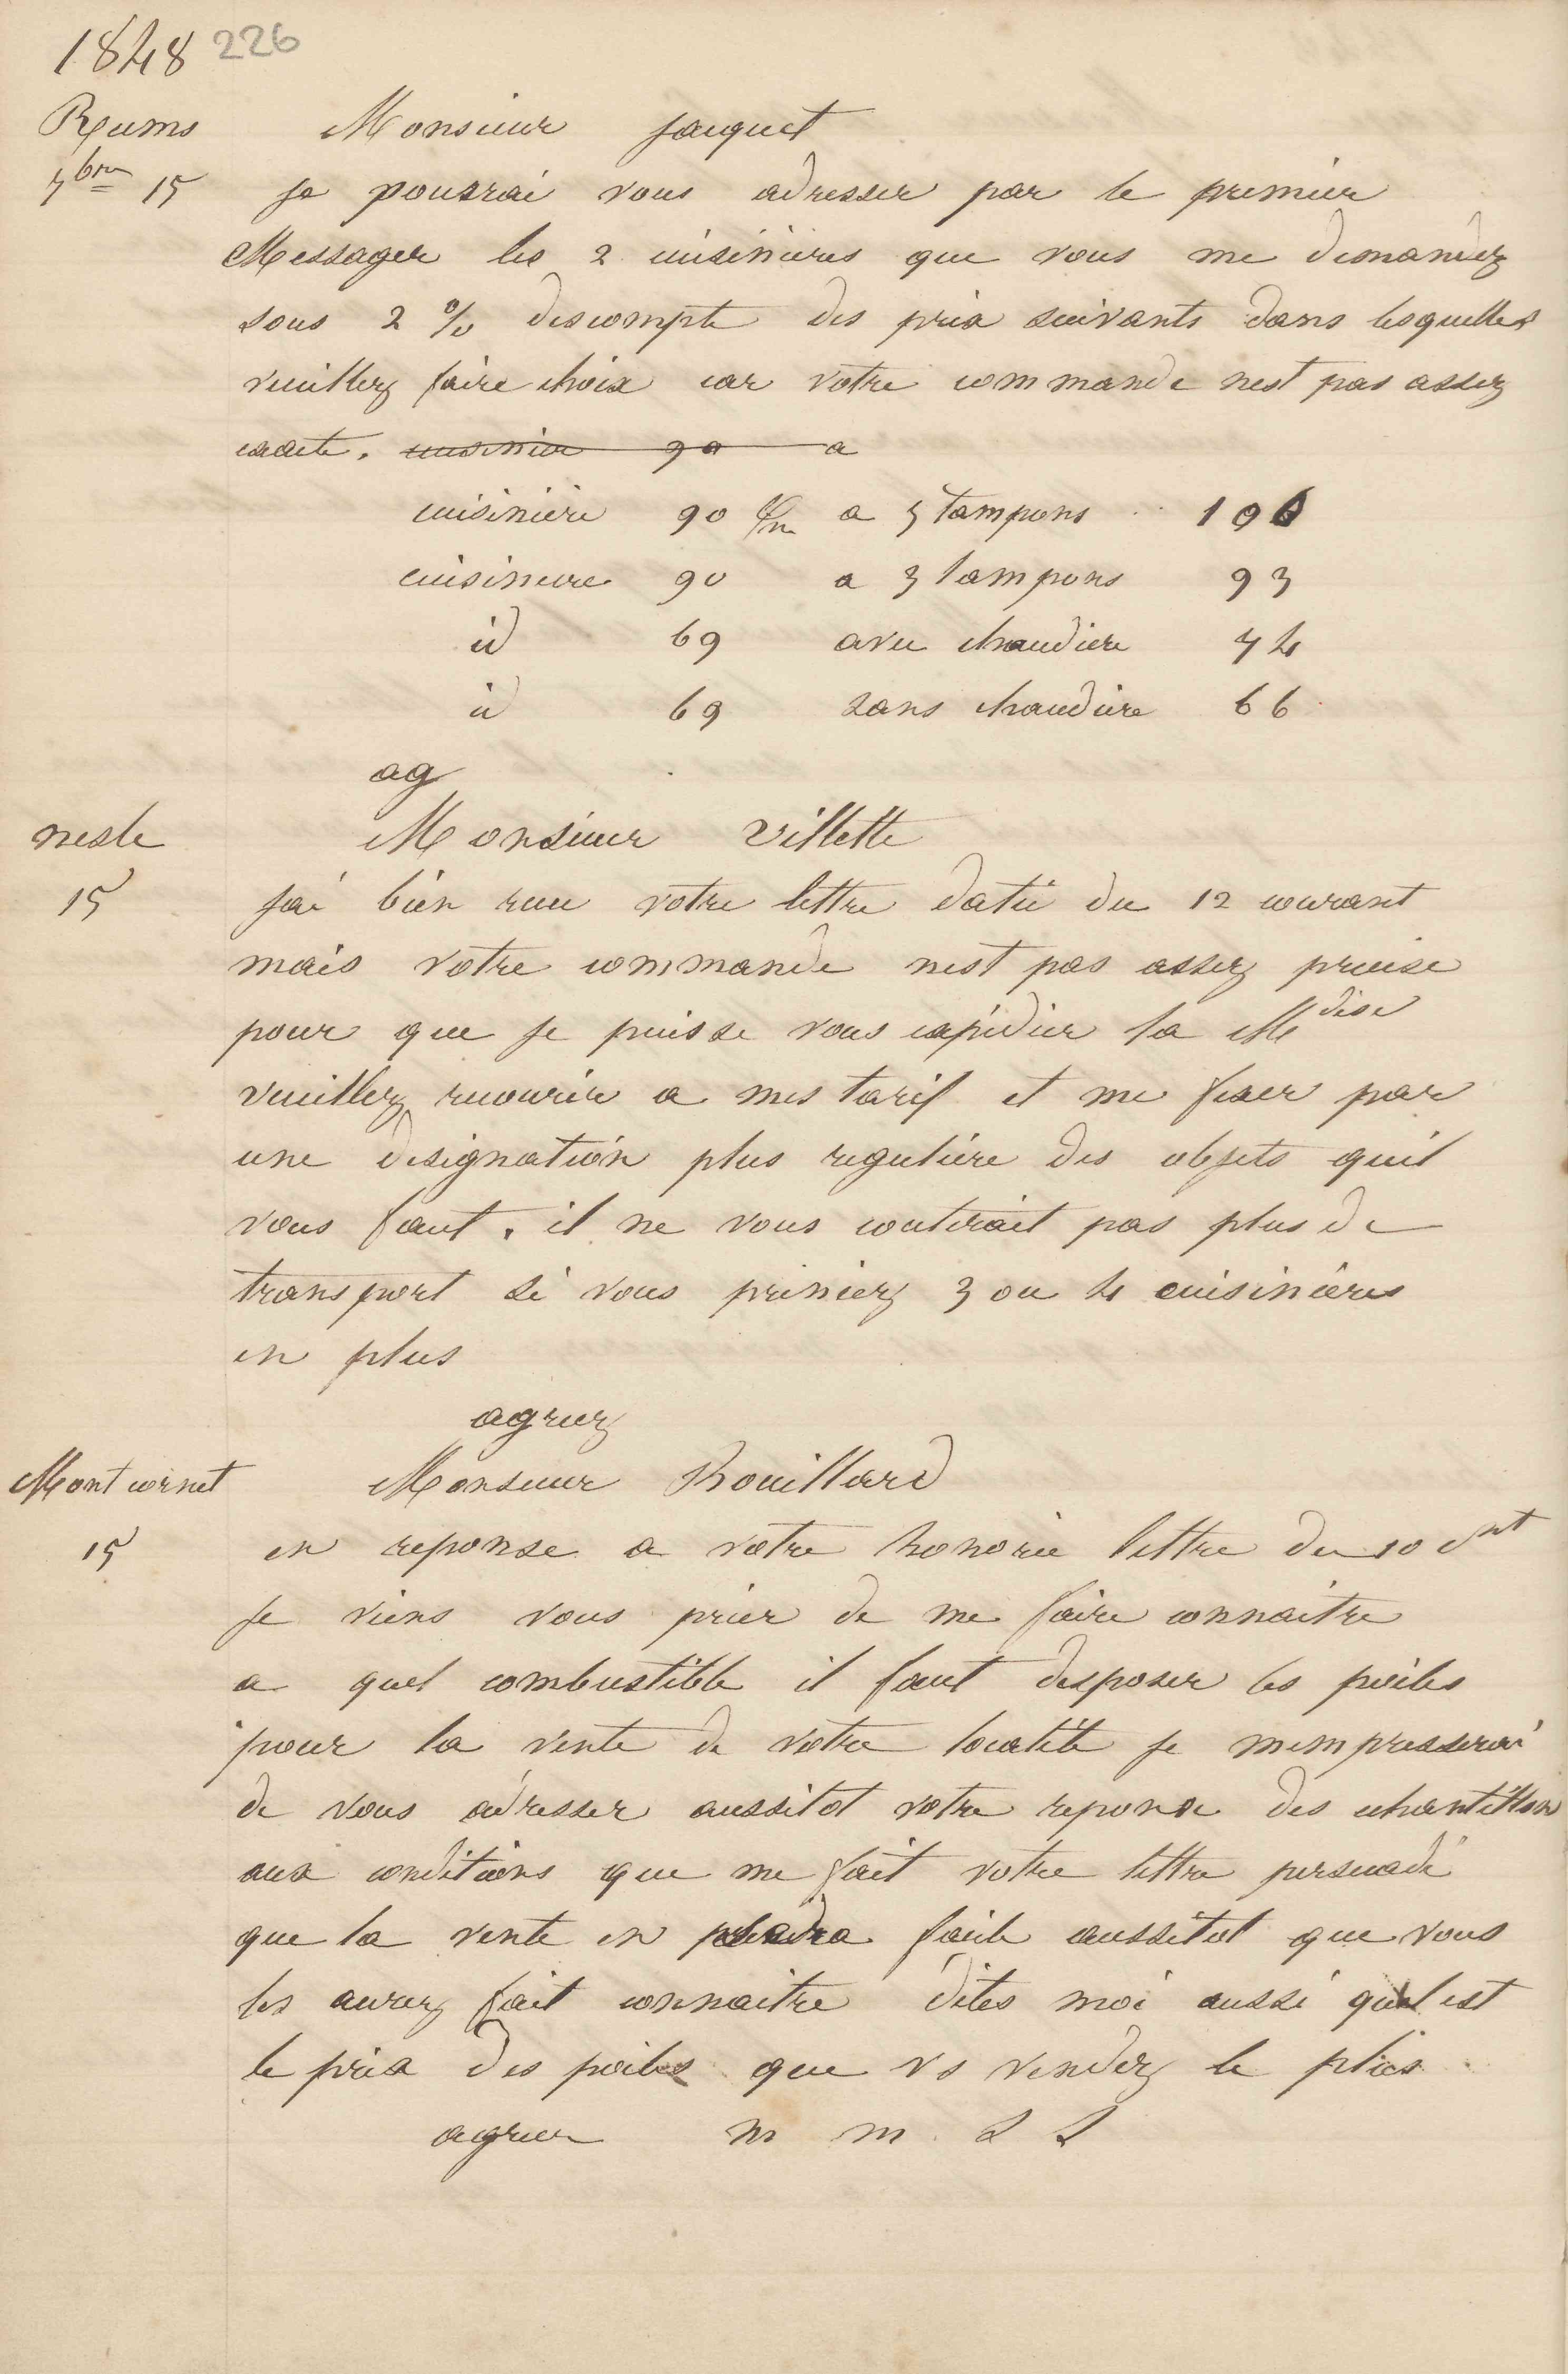 1848 226
Reims Monsieur Jacquet
7bre 15 Je pourrai vous adresser par le premier
Messager les 2 cuisinieres que vous me demandez
sous 2 % descompte des prix suivants dans lesquelles
veuillez faire choix car votre commande nest pas assez
exacte. cuisiniere 90 a
cuisinière 90 c/m a 5 tampons 106
cuisiniere 90 a 3 tampons 93
id 69 avec chaudiere 74
id 69 sans chaudière 66
ag
nesle Monsieur Villette
15 Jai bien recu votre lettre datée du 12 courant
mais votre commande nest pas assez precise
pour que je puisse vous expédier la Mdise
veuillez recourir a mes tarif et me fixer par
une designation plus regulière des objets quil
vous faut. il ne vous couterait pas plus de
transport si vous preniez 3 ou 4 cuisinières
en plus
agreez
Montcornet Monsieur Rouillard
15 en reponse a votre honorée lettre du 10 ct
Je viens vous prier de me faire connaitre
a quel combustible il faut disposer les poëles
pour la vente de votre localité je mempresserai
de vous adresser aussitot votre reponse des echantillon
aux conditions que me fait votre lettre persuadé
que la vente en facile aussitot que vous
les aurez fait connaitre dites moi aussi quel est
le prix des poiles que vs vendez le plus
agreer m m S S